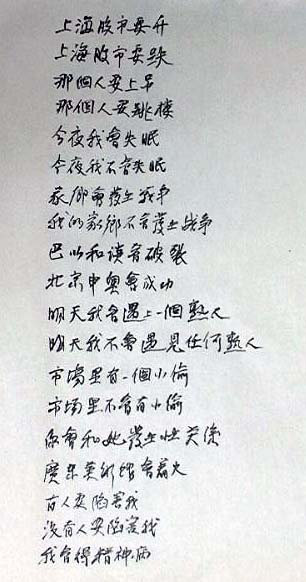 上海股市要升
上海股市要跌
那個人要上吊
那個人要跳楼
今夜我會失眠
今夜我不會失眠
家鄉會發生战争
我的家鄉不會發生战争
巴以和谈會破裂
北京申奥會成功
明天我會遇上一個熟人
明天我不會遇見任何熟人
市場里有一個小偷
市场里不會有小偷
你會和她發生性关係
廣東美術館會着火
有人要陷害我
没有人要陷害我
我會得精神病